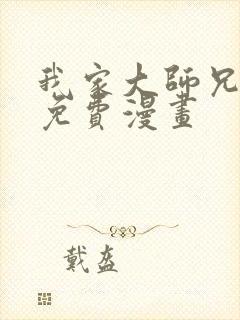 我家大師兄
免費漫畫
戴盔